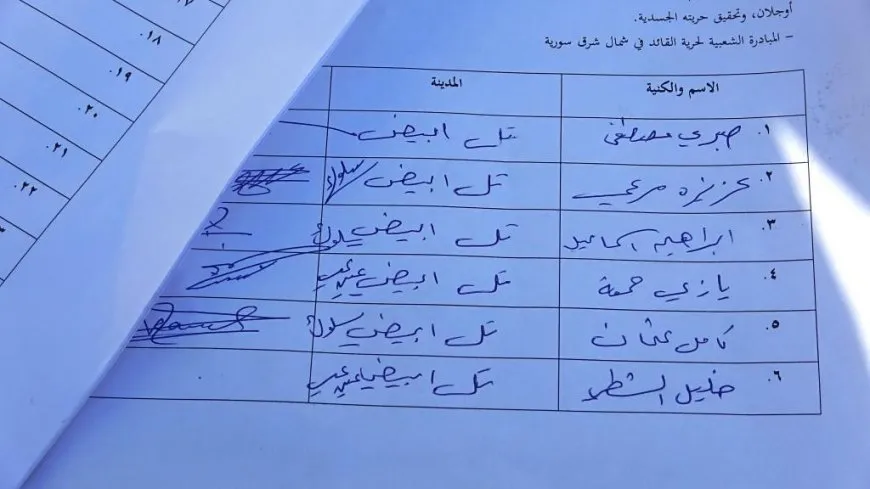 أوجلان، وتحقيق حريته الجسدية.
– المبادرة الشعبية لحرية القائد في شمال شرق سورية
الاسم والكنية المدينة
١. صبري مصطفى تل ابيض
٢. عزيزة مرعي تل ابيض سلوك
٣. ابراهيم اسماعيل تل ابيض سلوك
٤. يازي حمة تل ابيض
٥. كامل عثمان تل ابيض سلوك
٦. خليل الشطي تل ابيض
١٨.
١٩.
٢٠.
٢١.
٢٢.